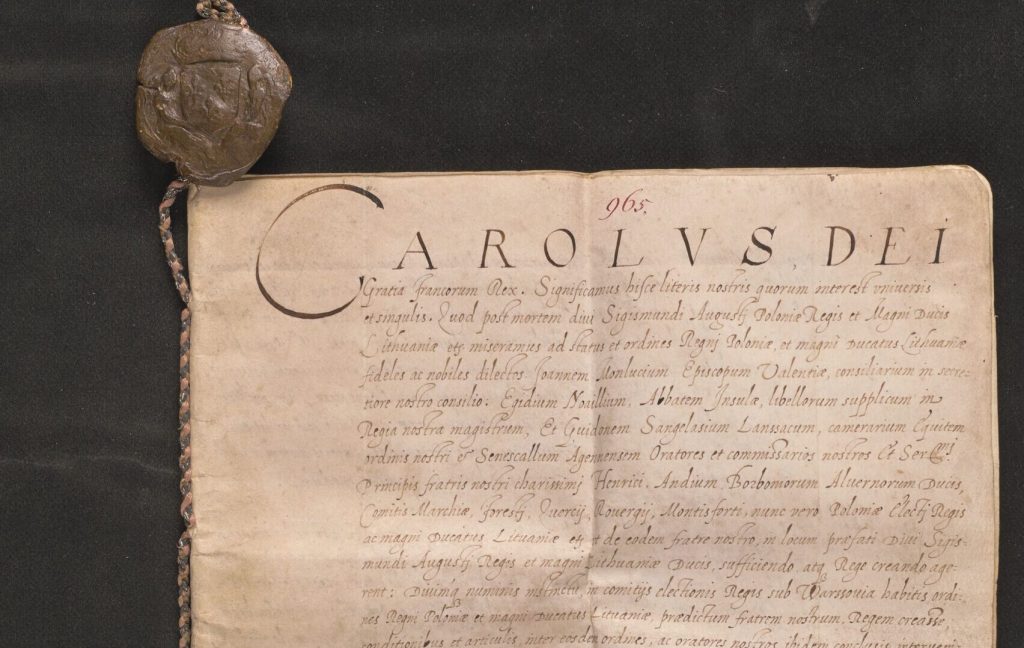 965.
CAROLVS, DEI
Gratia francorum Rex. Significamus hisce literis nostris quorum interest vniuersis
et singulis. Quod post mortem diui Sigismundi Augustj Poloniæ Regis et Magni Ducis
Lithuaniæ etc miseramus ad status et ordines Regnj Poloniæ, et magni Ducatus Lithuaniæ
fideles ac nobiles dilectos Joannem Monlucium Episcopum Valentiæ, consiliarium in secre-
tiore nostro consilio: Egidium Noaillium, Abbatem Insulæ, libellorum supplicum in
Regia nostra magistrum, Et Guidonem Sangelasium Lanssacum, camerarium Equitem
ordinis nostri & Senescallum Agennensem Oratores et commissarios nostros Et Ser.mj
Principis fratris nostri charissimj Henrici, Andium, Borboniorum Aluernorum Ducis,
Comitis Marchiæ, Forestj, Quercij, Rouergij, Montisforti, nunc vero Poloniæ Electj Regis
ac magni Ducatus Lituaniæ etc, et de eodem fratre nostro, in locum præfati Diui Sigis-
mundi Augustj Regis et magni Lithuaniæ Ducis, sufficiendo atq Rege creando age-
rent: Diuinq numinis instinctu, in comitijs electionis Regis sub Warssouia habitis ordi-
nes Regni Poloniæ et magni Ducatus Lituaniæ, prædictum fratrem nostrum, Regem creasse
conditionibus et articulis, inter eosdem ordines, ac oratores nostros ibidem conclusis interueni